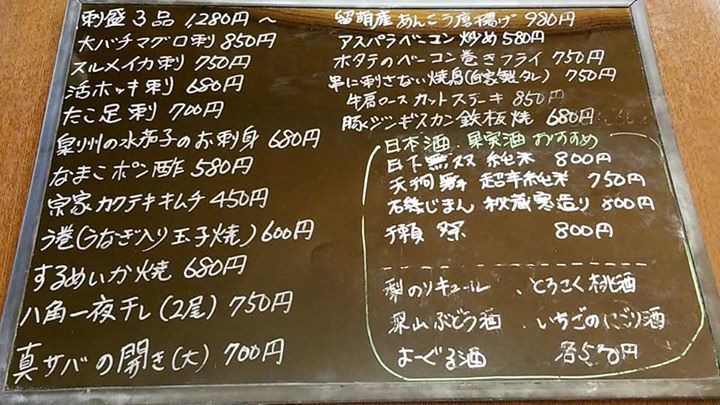 刺盛 3品 1280円〜
大バチマグロ刺 850円
スルメイカ刺 750円
活ホッキ刺 680円
たこ足刺 700円
泉州の水茄子のお刺身 680円
なまこポン酢 580円
宗家カクテキキムチ 450円
う巻(うなぎ入り玉子焼) 600円
するめいか焼 680円
八角一夜干し(2尾) 750円
真サバの開き(大) 700円
留萌産あんこう唐揚げ 980円
アスパラベーコン炒め 580円
ホタテのベーコン巻きフライ 750円
串に刺さない焼鳥(自家製タレ) 750円
牛肩ロースカットステーキ 850円
豚ジンギスカン鉄板焼 680円
日本酒・果実酒おすすめ
日下無双 純米 800円
天狗舞 超辛純米 750円
磯じまん 秘蔵寒造り 800円
獺祭 800円
梨のリキュール 、とろこく桃酒
、いちごのにごり酒
よーぐる酒